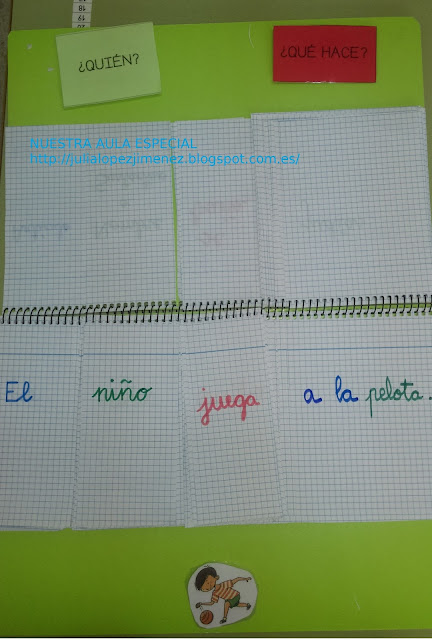 ¿QUIÉN?
¿QUÉ HACE?
NUESTRA AULA ESPECIAL
http://julialopezjimenez.blogspot.com.es/
El niño juega a la pelota.